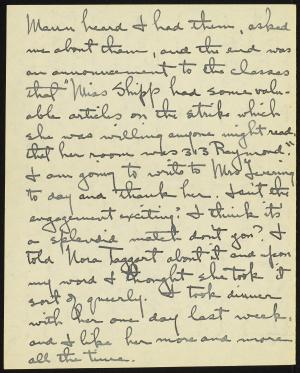 Mann heard I had them, asked
me about them, and the end was
an announcement to the classes
that "Miss Shipp had some valu-
able articles on the strike which
she was willing anyone might read,
that her room was 313 Raymond."
I am going to write to Mrs
to day and thank her. Isn't the
engagement exciting? I think its
a splendid match don't you? I
told Nora Taggart about it and upon
my word I thought she took it
sort o' queerly. I took dinner
with her one day last week.
and I like her more and more
all the time.